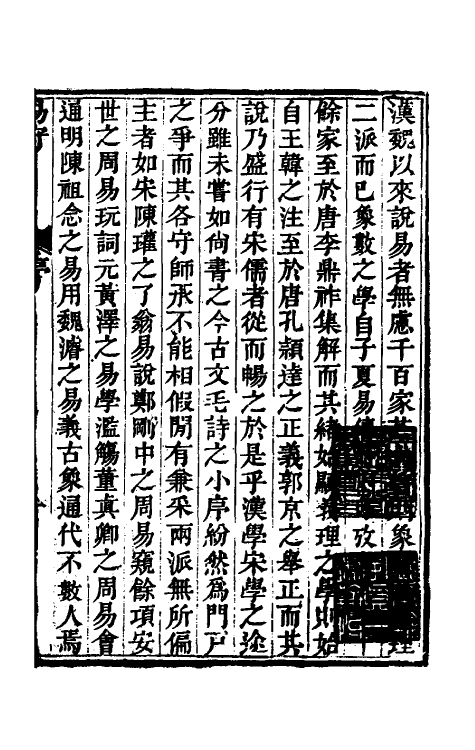 漢魏以來說易者無慮千百家其象理
二派而已象數之學自子夏易傳攷
餘家至於唐李鼎祚集解而其緒始顯義理之學則始
自王韓之注至於唐孔頴達之正義郭京之舉正而其
說乃盛行有宋儒者從而暢之於是乎漢學宋學之途
分雖未嘗如尙書之今古文毛詩之小序紛然爲門戸
之爭而其各守師承不能相假閒有兼采兩派無所偏
主者如宋陳瓘之了翁易說鄭剛中之周易窺餘項安
世之周易玩詞元黃澤之易學濫觴董真卿之周易會
通明陳祖念之易用魏濬之易義古象通代不數人焉
易序
序